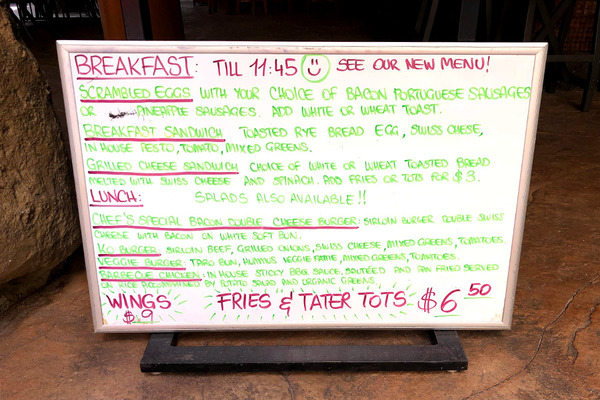 BREAKFAST: TILL 11:45 SEE OUR NEW MENU!
SCRAMBLED EGGS WITH YOUR CHOICE OF BACON PORTUGUESE SAUSAGES
OR PINEAPPLE SAUSAGES. ADD WHITE OR WHEAT TOAST.
BREAKFAST SANDWICH TOASTED RYE BREAD EGG, SWISS CHESE,
IN HOUSE PESTO, TOMATO, MIXED GREENS.
GRILLED CHEESE SANDWICH CHOICE OF WHITE OR WHEAT TOASTED BREAD
MELTED WITH SWISS CHEESE AND SPINACH. ADD FRIES OR TOTS FOR $3.
LUNCH: SALADS ALSO AVAILABLE!!
CHEF'S SPECIAL BACON DOUBLE CHEESE BURGER: SIRLOIN BURGER DOUBLE SWISS
CHEESE WITH BACON ON WHITE SOFT BUN.
KO BURGER: SIRLOIN BEEF, GRILLED ONIONS, SWISS CHEESE, MIXED GREENS, TOMATOES.
VEGGIE BURGER: TARO BUN, HUMMUS VEGGIE PATTIE, MIXED GREENS, TOMATOES.
BARBECUE CHICKEN: IN HOUSE STICKY BBQ SAUCE, SAUTEED AND PAN FRIED SERVED
ON RICE ACCOMPANIED BY POTATO SALAD AND ORGANIC GREENS.
WINGS FRIES & TATER TOTS $6.50
$9